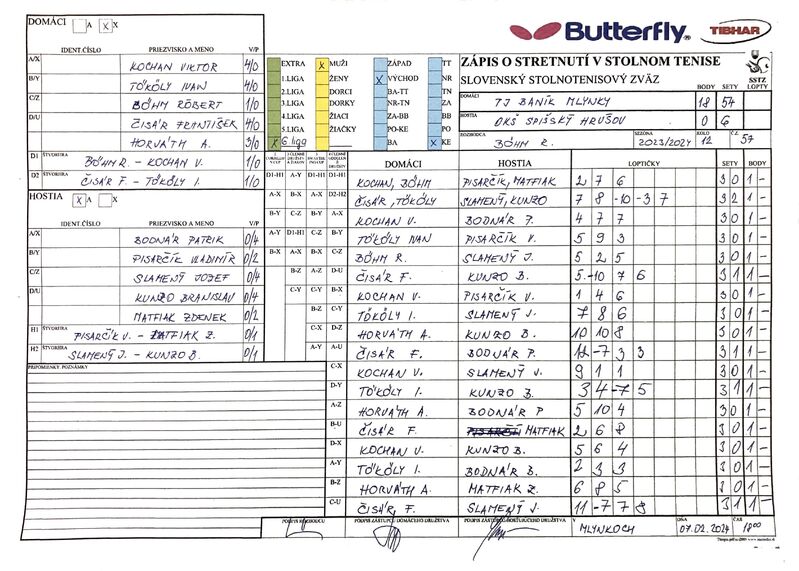 DOMÁCI A X X
Butterfly TIBHAR
IDENT.ČÍSLO PRIEZVISKO A MENO V/P
ZÁPIS O STRETNUTÍ V STOLNOM TENISE
SLOVENSKÝ STOLNOTENISOVÝ ZVÄZ
SSTZ
BODY SETY LOPTY
A/X KOCHAN VIKTOR 4/0
B/Y TÖKÖLY IVAN 4/0
C/Z BÖHM RÓBERT 1/0
D/U ČISÁR FRANTIŠEK 4/0
HORVÁTH A. 3/0
D1 ŠTVORHRA BÖHM R. - KOCHAN V. 1/0
D2 ŠTVORHRA ČISÁR F. - TÖKÖLY I. 1/0
EXTRA X MUŽI ZÁPAD TT
1.LIGA ŽENY X VÝCHOD NR
2.LIGA DORCI BA-TT TN
3.LIGA DORKY NR-TN ZA
4.LIGA ŽIACI ZA-BB BB
5.LIGA ŽIAČKY PO-KE PO
X 6.liga BA X KE
DOMÁCI TJ BANÍK MLYNKY 18 54
HOSTIA OKŠ SPIŠSKÝ HRUŠOV 0 6
ROZHODCA BÖHM R. SEZÓNA 2023/2024 KOLO 12 Č.Z. 57
DOMÁCI HOSTIA LOPTIČKY SETY BODY
D1-H1 A-Y D1-H1 D1-H1 KOCHAN, BÖHM PISARČÍK, MATFIAK 2 7 6 3 0 1 -
A-X B-X A-X D2-H2 ČISÁR, TÖKÖLY SLAMENÝ, KUNZO 7 8 -10 -3 7 3 2 1 -
B-Y C-Z B-Y A-X KOCHAN V. BODNÁR P. 4 7 7 3 0 1 -
A-Y D1-H1 C-Z B-Y TÖKÖLY IVAN PISARČÍK V. 5 9 3 3 0 1 -
B-X A-X B-X C-Z BÖHM R. SLAMENÝ J. 5 2 5 3 0 1 -
B-Z A-Z D-U ČISÁR F. KUNZO B. 5 -10 7 6 3 1 1 -
C-Y C-Y B-X KOCHAN V. PISARČÍK V. 1 4 6 3 0 1 -
B-Z C-Y TÖKÖLY I. SLAMENÝ J. 7 8 6 3 0 1 -
C-X D-Z HORVÁTH A. KUNZO B. 10 10 8 3 0 1 -
A-Y A-U ČISÁR F. BODNÁR P. 11 -7 3 3 3 1 1 -
C-X KOCHAN V. SLAMENÝ J. 9 1 1 3 0 1 -
D-Y TÖKÖLY I. KUNZO B. 3 4 -7 5 3 1 1 -
A-Z HORVÁTH A. BODNÁR P 5 10 4 3 0 1 -
B-U ČISÁR F. MATFIAK 2 6 8 3 0 1 -
D-X KOCHAN V. KUNZO B. 5 6 4 3 0 1 -
A-Y TÖKÖLY I. BODNÁR B. 2 3 3 3 0 1 -
B-Z HORVÁTH A. MATFIAK Z. 6 8 5 3 0 1 -
C-U ČISÁR F. SLAMENÝ J. 11 -7 7 8 3 1 1 -
HOSTIA X A X
IDENT.ČÍSLO PRIEZVISKO A MENO V/P
A/X BODNÁR PATRIK 0/4
B/Y PISARČÍK VLADIMÍR 0/2
C/Z SLAMENÝ JOZEF 0/4
D/U KUNZO BRANISLAV 0/4
MATFIAK ZDENEK 0/2
H1 ŠTVORHRA PISARČÍK V. - MATFIAK Z. 0/1
H2 ŠTVORHRA SLAMENÝ J. - KUNZO B. 0/1
PRIPOMIENKY, POZNÁMKY
PODPIS ROZHODCU PODPIS ZÁSTUPCU DOMÁCEHO DRUŽSTVA PODPIS ZÁSTUPCU HOSŤUJÚCEHO DRUŽSTVA V MLYNKOCH DŇA 07.02.2024 ČAS 18:00